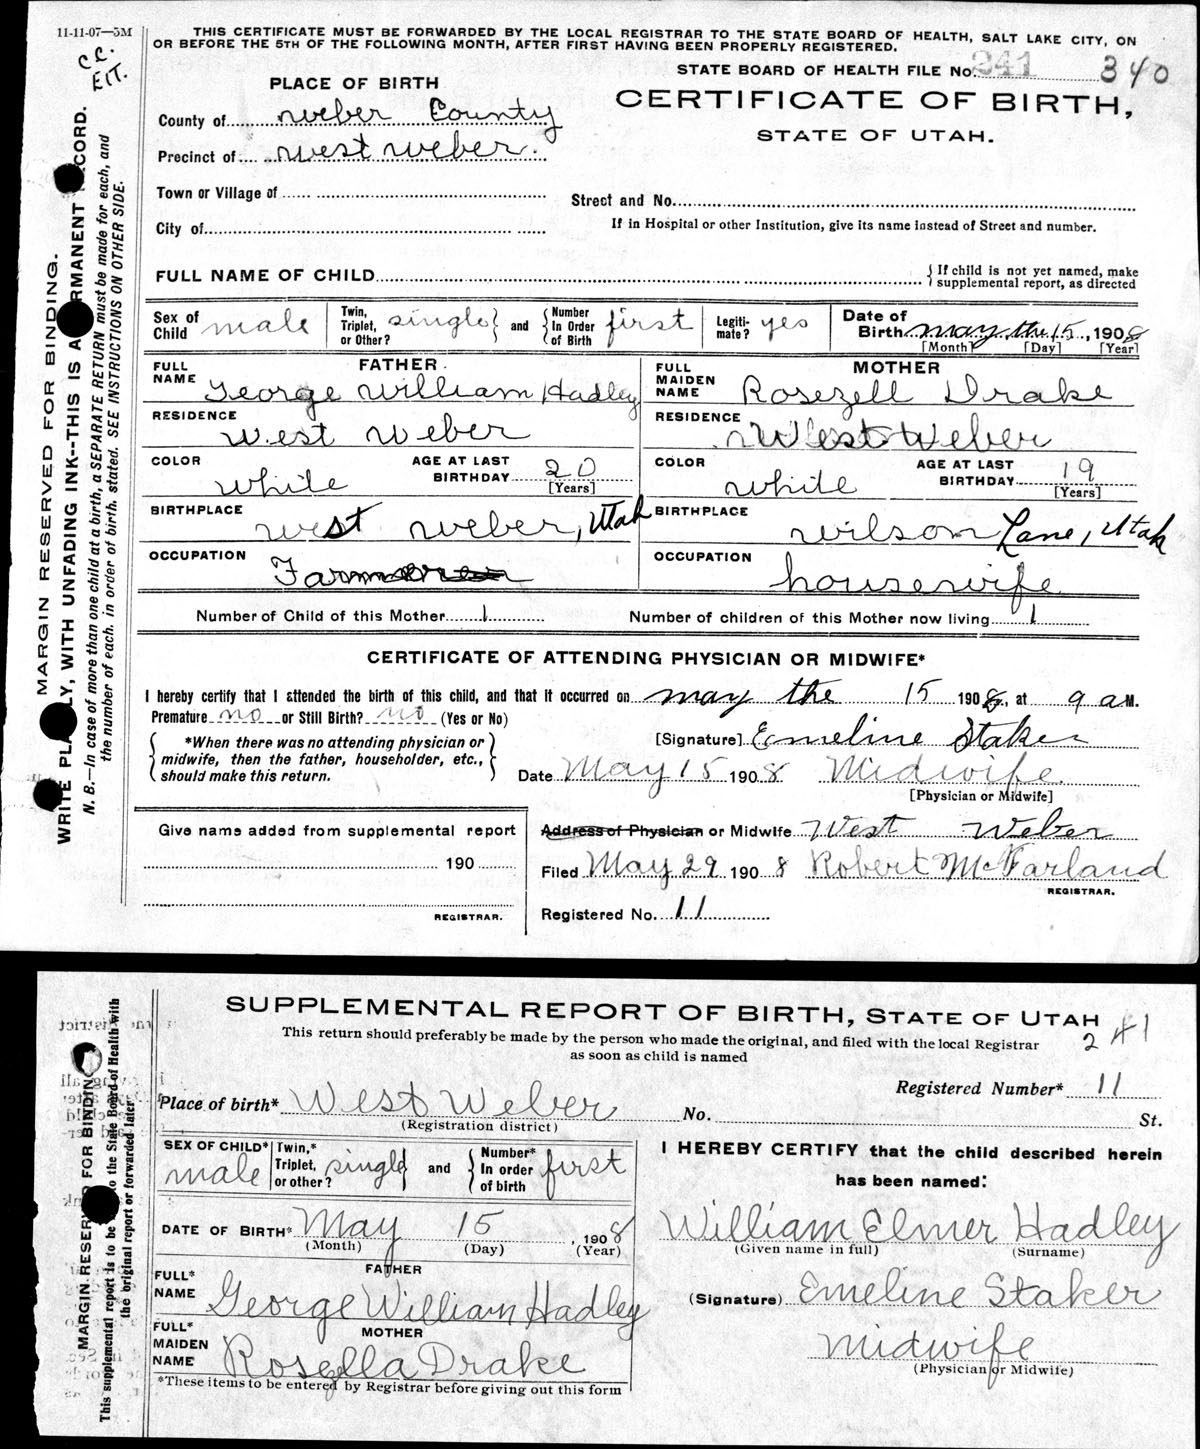 11-11-07—5M
C.C.
E.T.
THIS CERTIFICATE MUST BE FORWARDED BY THE LOCAL REGISTRAR TO THE STATE BOARD OF HEALTH, SALT LAKE CITY, ON
OR BEFORE THE 5TH OF THE FOLLOWING MONTH, AFTER FIRST HAVING BEEN PROPERLY REGISTERED.
STATE BOARD OF HEALTH FILE No. 241 340
PLACE OF BIRTH
CERTIFICATE OF BIRTH,
STATE OF UTAH.
County of weber County
Precinct of west weber.
Town or Village of
Street and No.
City of
If in Hospital or other Institution, give its name instead of Street and number.
FULL NAME OF CHILD
If child is not yet named, make
supplemental report, as directed
Sex of Child male
Twin, Triplet, or Other? single and Number In Order of Birth first
Legiti- mate? yes
Date of Birth may the 15, 1908
[Month] [Day] [Year]
FATHER
FULL NAME George William Hadley
MOTHER
FULL MAIDEN NAME Rosezell Drake
RESIDENCE West Weber
RESIDENCE West Weber
COLOR white AGE AT LAST BIRTHDAY 20 [Years]
COLOR white AGE AT LAST BIRTHDAY 19 [Years]
BIRTHPLACE west weber, Utah
BIRTHPLACE wilson Lane, Utah
OCCUPATION Farmer
OCCUPATION housewife
Number of Child of this Mother 1
Number of children of this Mother now living 1
CERTIFICATE OF ATTENDING PHYSICIAN OR MIDWIFE*
I hereby certify that I attended the birth of this child, and that it occurred on may the 15 1908, at 9 a M.
Premature no or Still Birth? no (Yes or No)
*When there was no attending physician or
midwife, then the father, householder, etc.,
should make this return.
[Signature] Emeline Staker
Date May 15 1908 Midwife
[Physician or Midwife]
Give name added from supplemental report
190
REGISTRAR.
Address of Physician or Midwife West Weber
Filed May 29 1908 Robert McFarland
REGISTRAR.
Registered No. 11
MARGIN RESERVED FOR BINDING.
WRITE PLA LY, WITH UNFADING INK--THIS IS A RMANENT CORD.
N. B.—In case of more than one child at a birth, a SEPARATE RETURN must be made for each, and
the number of each, in order of birth, stated. SEE INSTRUCTIONS ON OTHER SIDE.
SUPPLEMENTAL REPORT OF BIRTH, STATE OF UTAH
This return should preferably be made by the person who made the original, and filed with the local Registrar
as soon as child is named
241
Registered Number* 11
Place of birth* West Weber No. St.
(Registration district)
SEX OF CHILD* male
Twin,* Triplet, or other? single and Number* In order of birth first
DATE OF BIRTH* May 15, 1908
(Month) (Day) (Year)
FATHER
FULL* NAME George William Hadley
MOTHER
FULL* MAIDEN NAME Rosella Drake
*These items to be entered by Registrar before giving out this form
I HEREBY CERTIFY that the child described herein
has been named:
William Elmer Hadley
(Given name in full) (Surname)
(Signature) Emeline Staker
Midwife
(Physician or Midwife)
MARGIN RESER FOR BINDIN
This supplemental report is to be to the State Board of Health with
the original report or forwarded later